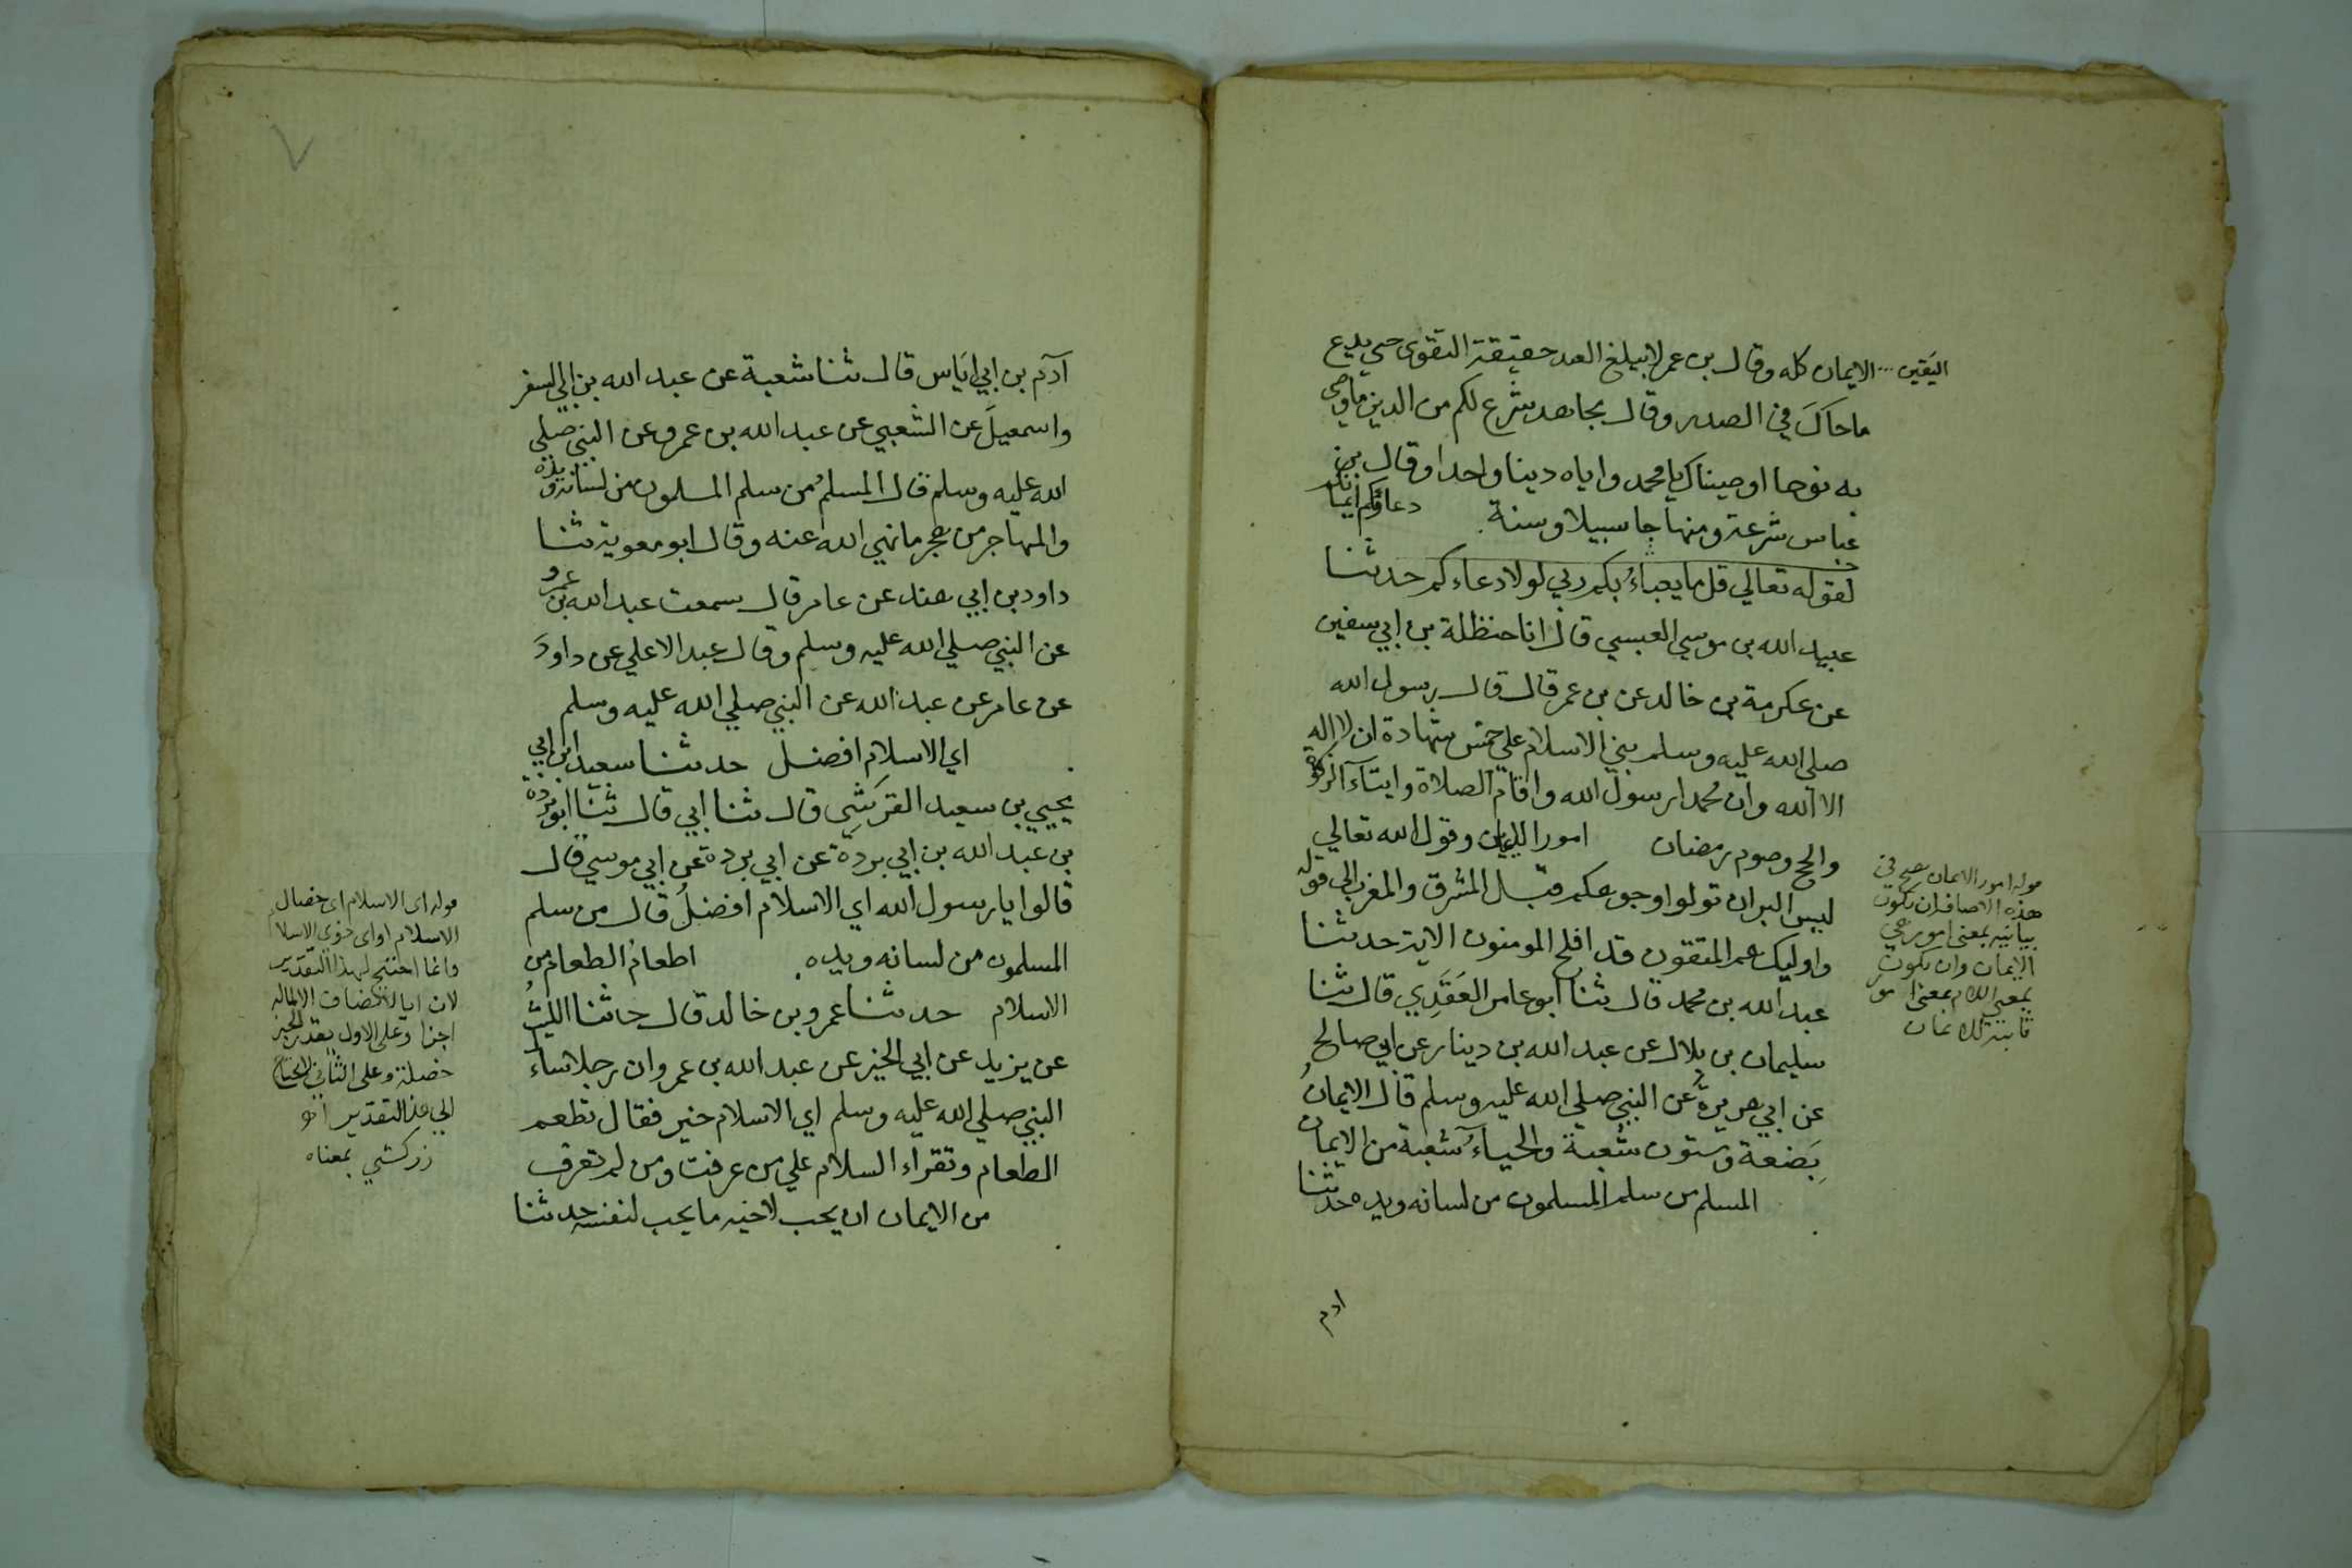 اليقين الايمان كله وقال بن عمر لا يبلغ العبد حقيقة التقوى حتي يدع
ما حاك في الصدر وقال مجاهد شرع لكم من الدين ما وصى
به نوحا اوصيناك يا محمد واياه دينا واحدا وقال بن
عباس شرعة ومنهاجا سبيلا وسنة دعاؤكم ايمانكم
لقوله تعالي قل ما يعباء بكم ربي لولا دعاءكم حدثنا
عبيد الله بن موسي العبسي قال انا حنظلة بن ابي سفين
عن عكرمة بن خالد عن بن عمر قال قال رسول الله
صلي الله عليه وسلم بني الاسلام علي خمس شهادة ان لا اله
الا الله وان محمدا رسول الله واقام الصلاة وايتاء الزكوة
والحج وصوم رمضان امور الايمان وقول الله تعالي
ليس البر ان تولوا وجوهكم قبل المشرق والمغرب الي قوله
واوليك هم المتقون قد افلح المومنون الاية حدثنا
عبد الله بن محمد قال ثنا ابو عامر العَقَدِي قال ثنا
سليمان بن بلال عن عبد الله بن دينار عن ابي صالح
عن ابي هريرة عن النبي صلي الله عليه وسلم قال الايمانُ
بِضعة وستون شعبة والحياء شعبة من الايمان
المسلم من سلم المسلمون من لسانه ويده حدثنا
ادم
قوله امور الايمان يصح في
هذه الاضافة ان تكون
بيانيه بمعنى امور هي
الايمان وان تكون
بمعنى اللام بمعنى امور
ثابتة للايمان
آدم بن ابي اياس قال ثنا شعبة عن عبد الله بن ابي السفر
واسمعيلَ عن الشعبي عن عبد الله بن عمرو عن النبي صلي
الله عليه وسلم قال المسلمُ من سلم المسلمون من لسانه ويده
والمهاجر من هجر ما نهي الله عنه وقال ابو معوية ثنا
داود بن ابي هند عن عامر قال سمعت عبد الله بن عمرو
عن النبي صلي الله عليه وسلم وقال عبد الاعلي عن داودَ
عن عامر عن عبد الله عن النبي صلي الله عليه وسلم
اي الاسلام افضل حدثنا سعيد ابن ابي
يحيي بن سعيد القرشي قال ثنا ابي قال ثنا ابو بردة
بن عبد الله بن ابي بردة عن ابي بردة عن ابي موسي قال
قالوا يا رسول الله اي الاسلام افضلُ قال من سلم
المسلمون من لسانه ويده اطعام الطعام من
الاسلام حدثنا عمرو بن خالد قال حدثنا الليثُ
عن يزيد عن ابي الخير عن عبد الله بن عمرو ان رجلا ساء
النبي صلي الله عليه وسلم اي الاسلام خير فقال تطعم
الطعام وتقراء السلام علي من عرفت ومن لم تعرف
من الايمان ان يحب لاخيه ما يحب لنفسه حدثنا
قوله اى الاسلام اى خصال
الاسلام او اى ذوي الاسلا
وانما احتيج لهذا التقدير
لان ايا لا تضاف الا لماله
اجزا وعلى الاول يقدر الخبر
خصلة وعلى الثاني لا يحتاج
الي هذا التقدير
زركشي بمعناه